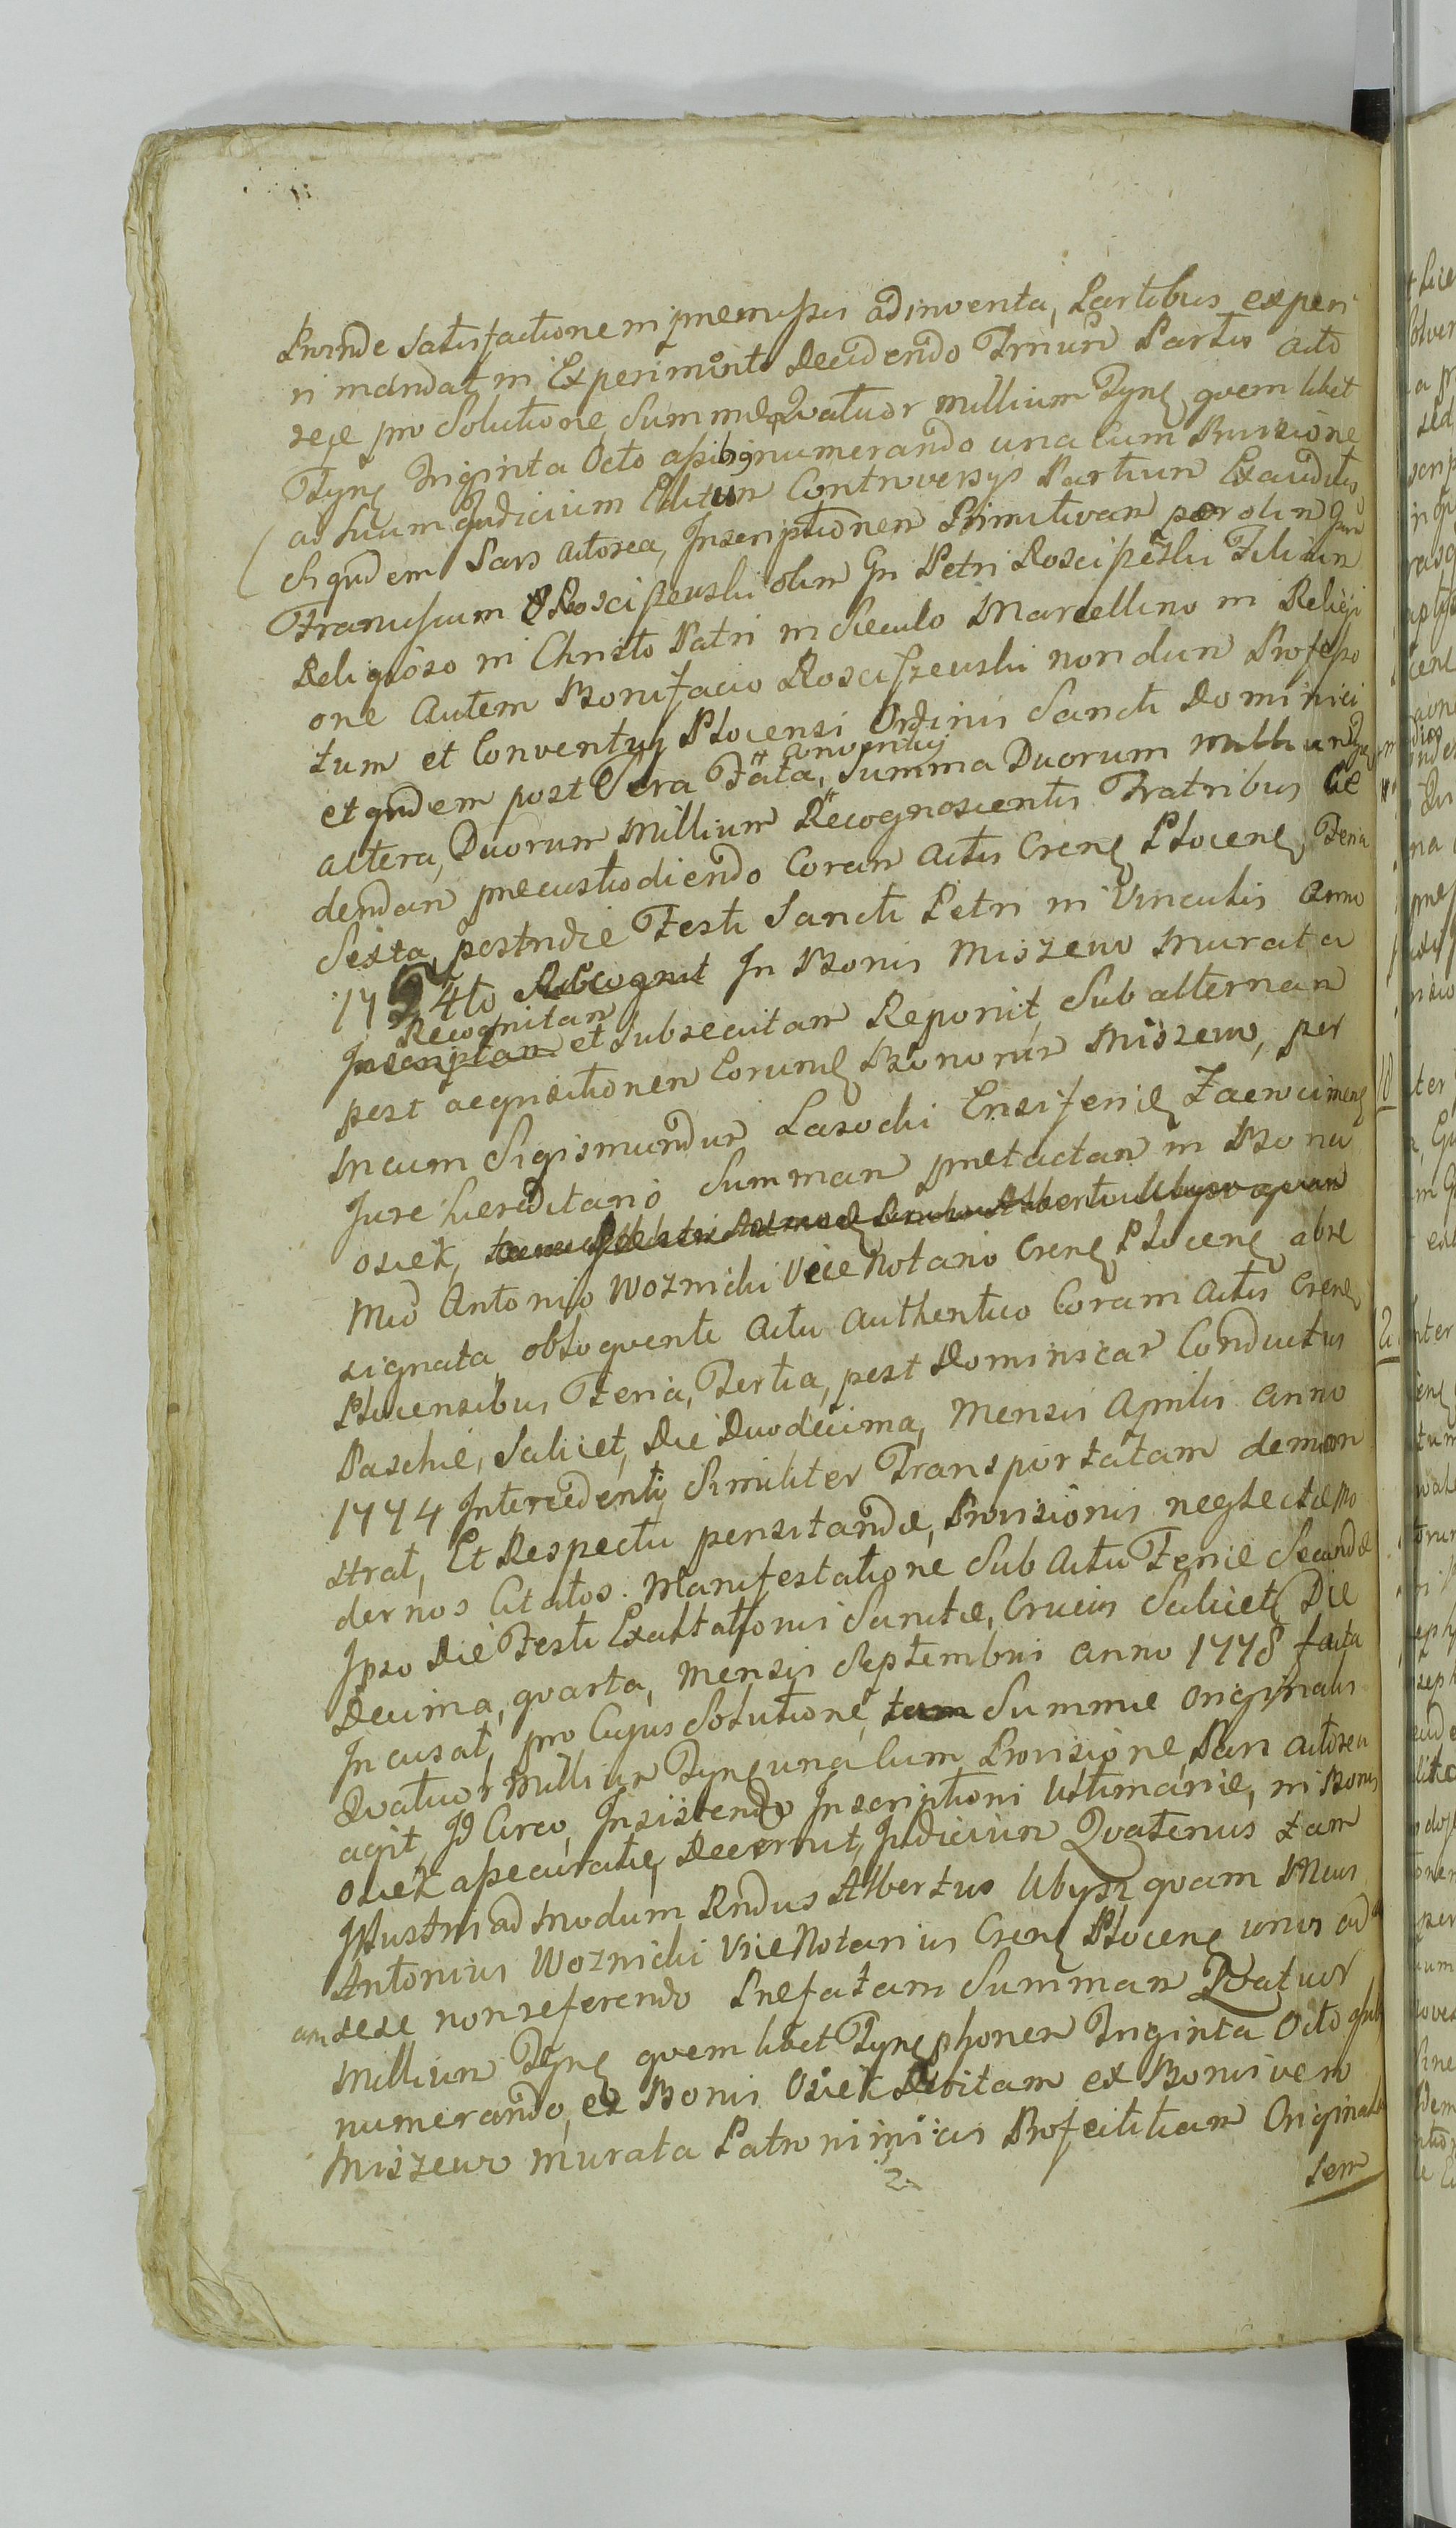 Proinde Satisfactionem premissis adinventa, Partibus experi
ri mandat, in Experimento Decidendo Trium Partis acto
reæ pro Solutione Summæ Quatuor millium Tynę quem libet
Tynę Triginta Octo assibus numerando una cum Provisione
ad suum Judicium Editum Controversys Partium Exauditis
Siquidem Pars Actorea, Inscriptionem Primitivam per olim Gnm
Franciscum Rosciszewski olim Gn Petri Rosciszewski Filium
Religioso in Christo Patri in Sæculo Marcellino in Religi
one Autem Bonifacio Rosciszewski nondum Professo
tum et Conventuj Plocensi Ordinis Sancti Dominici
et quidem post Sera Fata, Conventuj Summa Duorum Millium
altera, Duorum Millium Recognoscentis Fratribus Ce
dendam præcustodiendo Coram Actis Crenę Plocenę, Feria
Sexta, postridie Festi Sancti Petri in Vinculis Anno
1724to Recognit In Bonis Miszewo Murata
Inscriptam Recognitam et Subsecutam Reponit, Sub alternam
post acquisitionem Eorumę Bonorum Miszewo, per
Mcum Sigismundum Lasocki Ensiferię Zacrocimenę
Jure Hereditario Summam prætactam in Bona
Osiek,
Mco Antonio Woznicki Vice Notario Crenę Plocenę abre
signata, obloquente Actu Authentico Coram Actis Crenę
Plocensibus, Feria, Tertia, post Dominicam Conductus
Paschæ, Scilicet, Die Duodecima, Mensis Aprilis Anno
1774 Intercedenti Similiter Transportatam demon
strat, Et Respectu pensitandæ, Provisionis neglectæ Mo
dernos Citatos. Manifestatione Sub Actu Feriæ Secundæ
Ipso Die Festi Exaltationis Sanctæ, Crucis Scilicet, Die
Decima, quarta, Mensis Septembris Anno 1778 facta
Incusat, pro Cujus Solutione, tam Summæ Originalis
Quatuor Millium Tynę una Cum Provisione, Pars Actorea
agit, Id Circo, Insistendo Inscriptioni Ultimariæ, in Bonis
Osiek assecuratæ, Decernit, Judicium Quatenus tam
Illustris ad modum Rndus Albertus Ubysz quam Mcus
Antonius Woznicki Vice Notarius Crenę Plocenę unus ad
am sese non referendo Præfatam Summam Quatuor
Millium Tynę quem libet Tynę phonem Triginta Octo assib
numerando, ex Bonis Osiek Debitam ex Bonis vero
Miszewo murata Patronimicis Profectitiam Originalem
lem